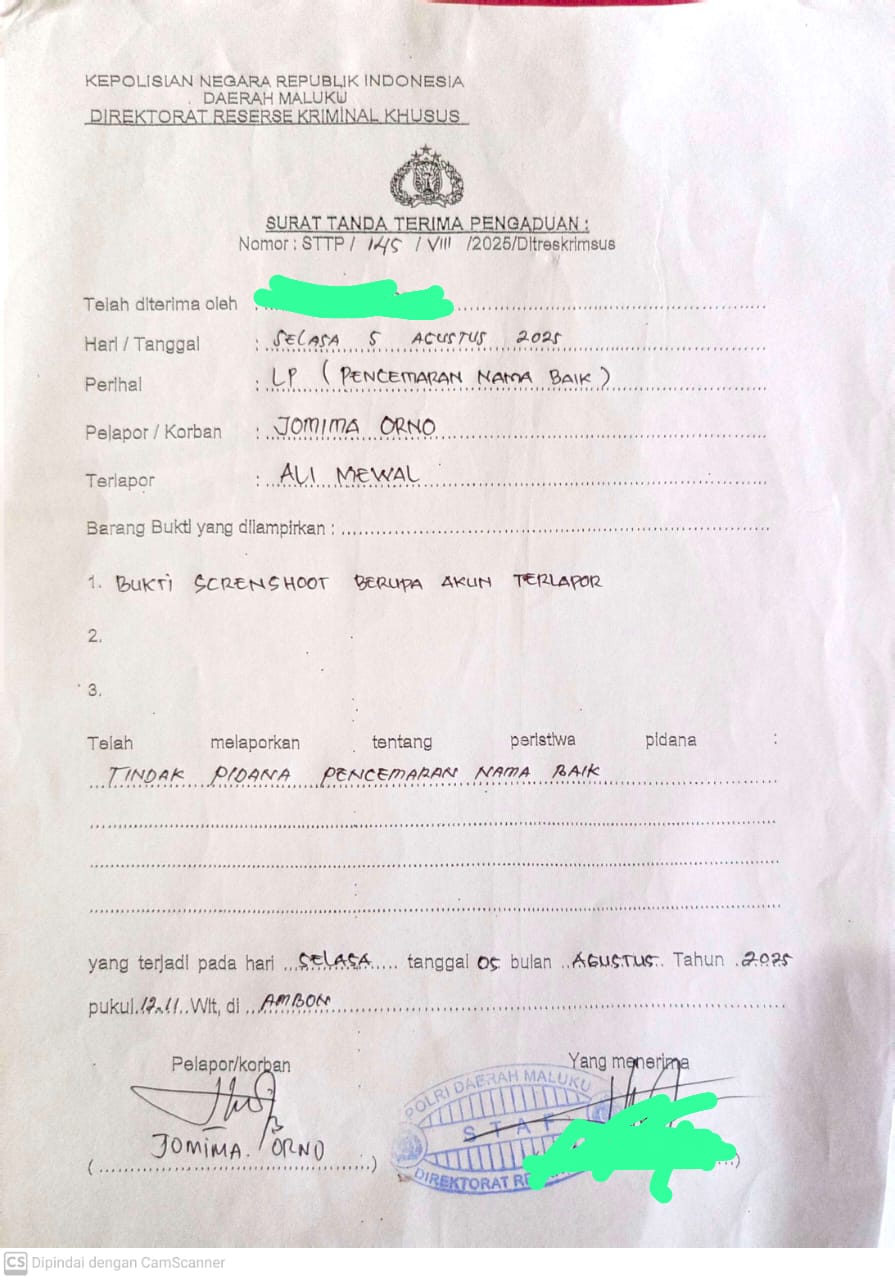 KEPOLISIAN NEGARA REPUBLIK INDONESIA
DAERAH MALUKU
DIREKTORAT RESERSE KRIMINAL KHUSUS
SURAT TANDA TERIMA PENGADUAN :
Nomor : STTP / 145 / VIII /2025/Ditreskrimsus
Telah diterima oleh :
Hari / Tanggal : SELASA 5 AGUSTUS 2025
Perihal : LP ( PENCEMARAN NAMA BAIK )
Pelapor / Korban : JOMIMA ORNO
Terlapor : ALI MEWAL
Barang Bukti yang dilampirkan :
1. BUKTI SCRENSHOOT BERUPA AKUN TERLAPOR
2.
3.
Telah melaporkan tentang peristiwa pidana :
TINDAK PIDANA PENCEMARAN NAMA BAIK
yang terjadi pada hari SELASA tanggal 05 bulan AGUSTUS Tahun 2025
pukul 12.11 Wit, di AMBON
Pelapor/korban Yang menerima
POLRI DAERAH MALUKU
STAF
DIREKTORAT
(JOMIMA. ORNO)
CS Dipindai dengan CamScanner